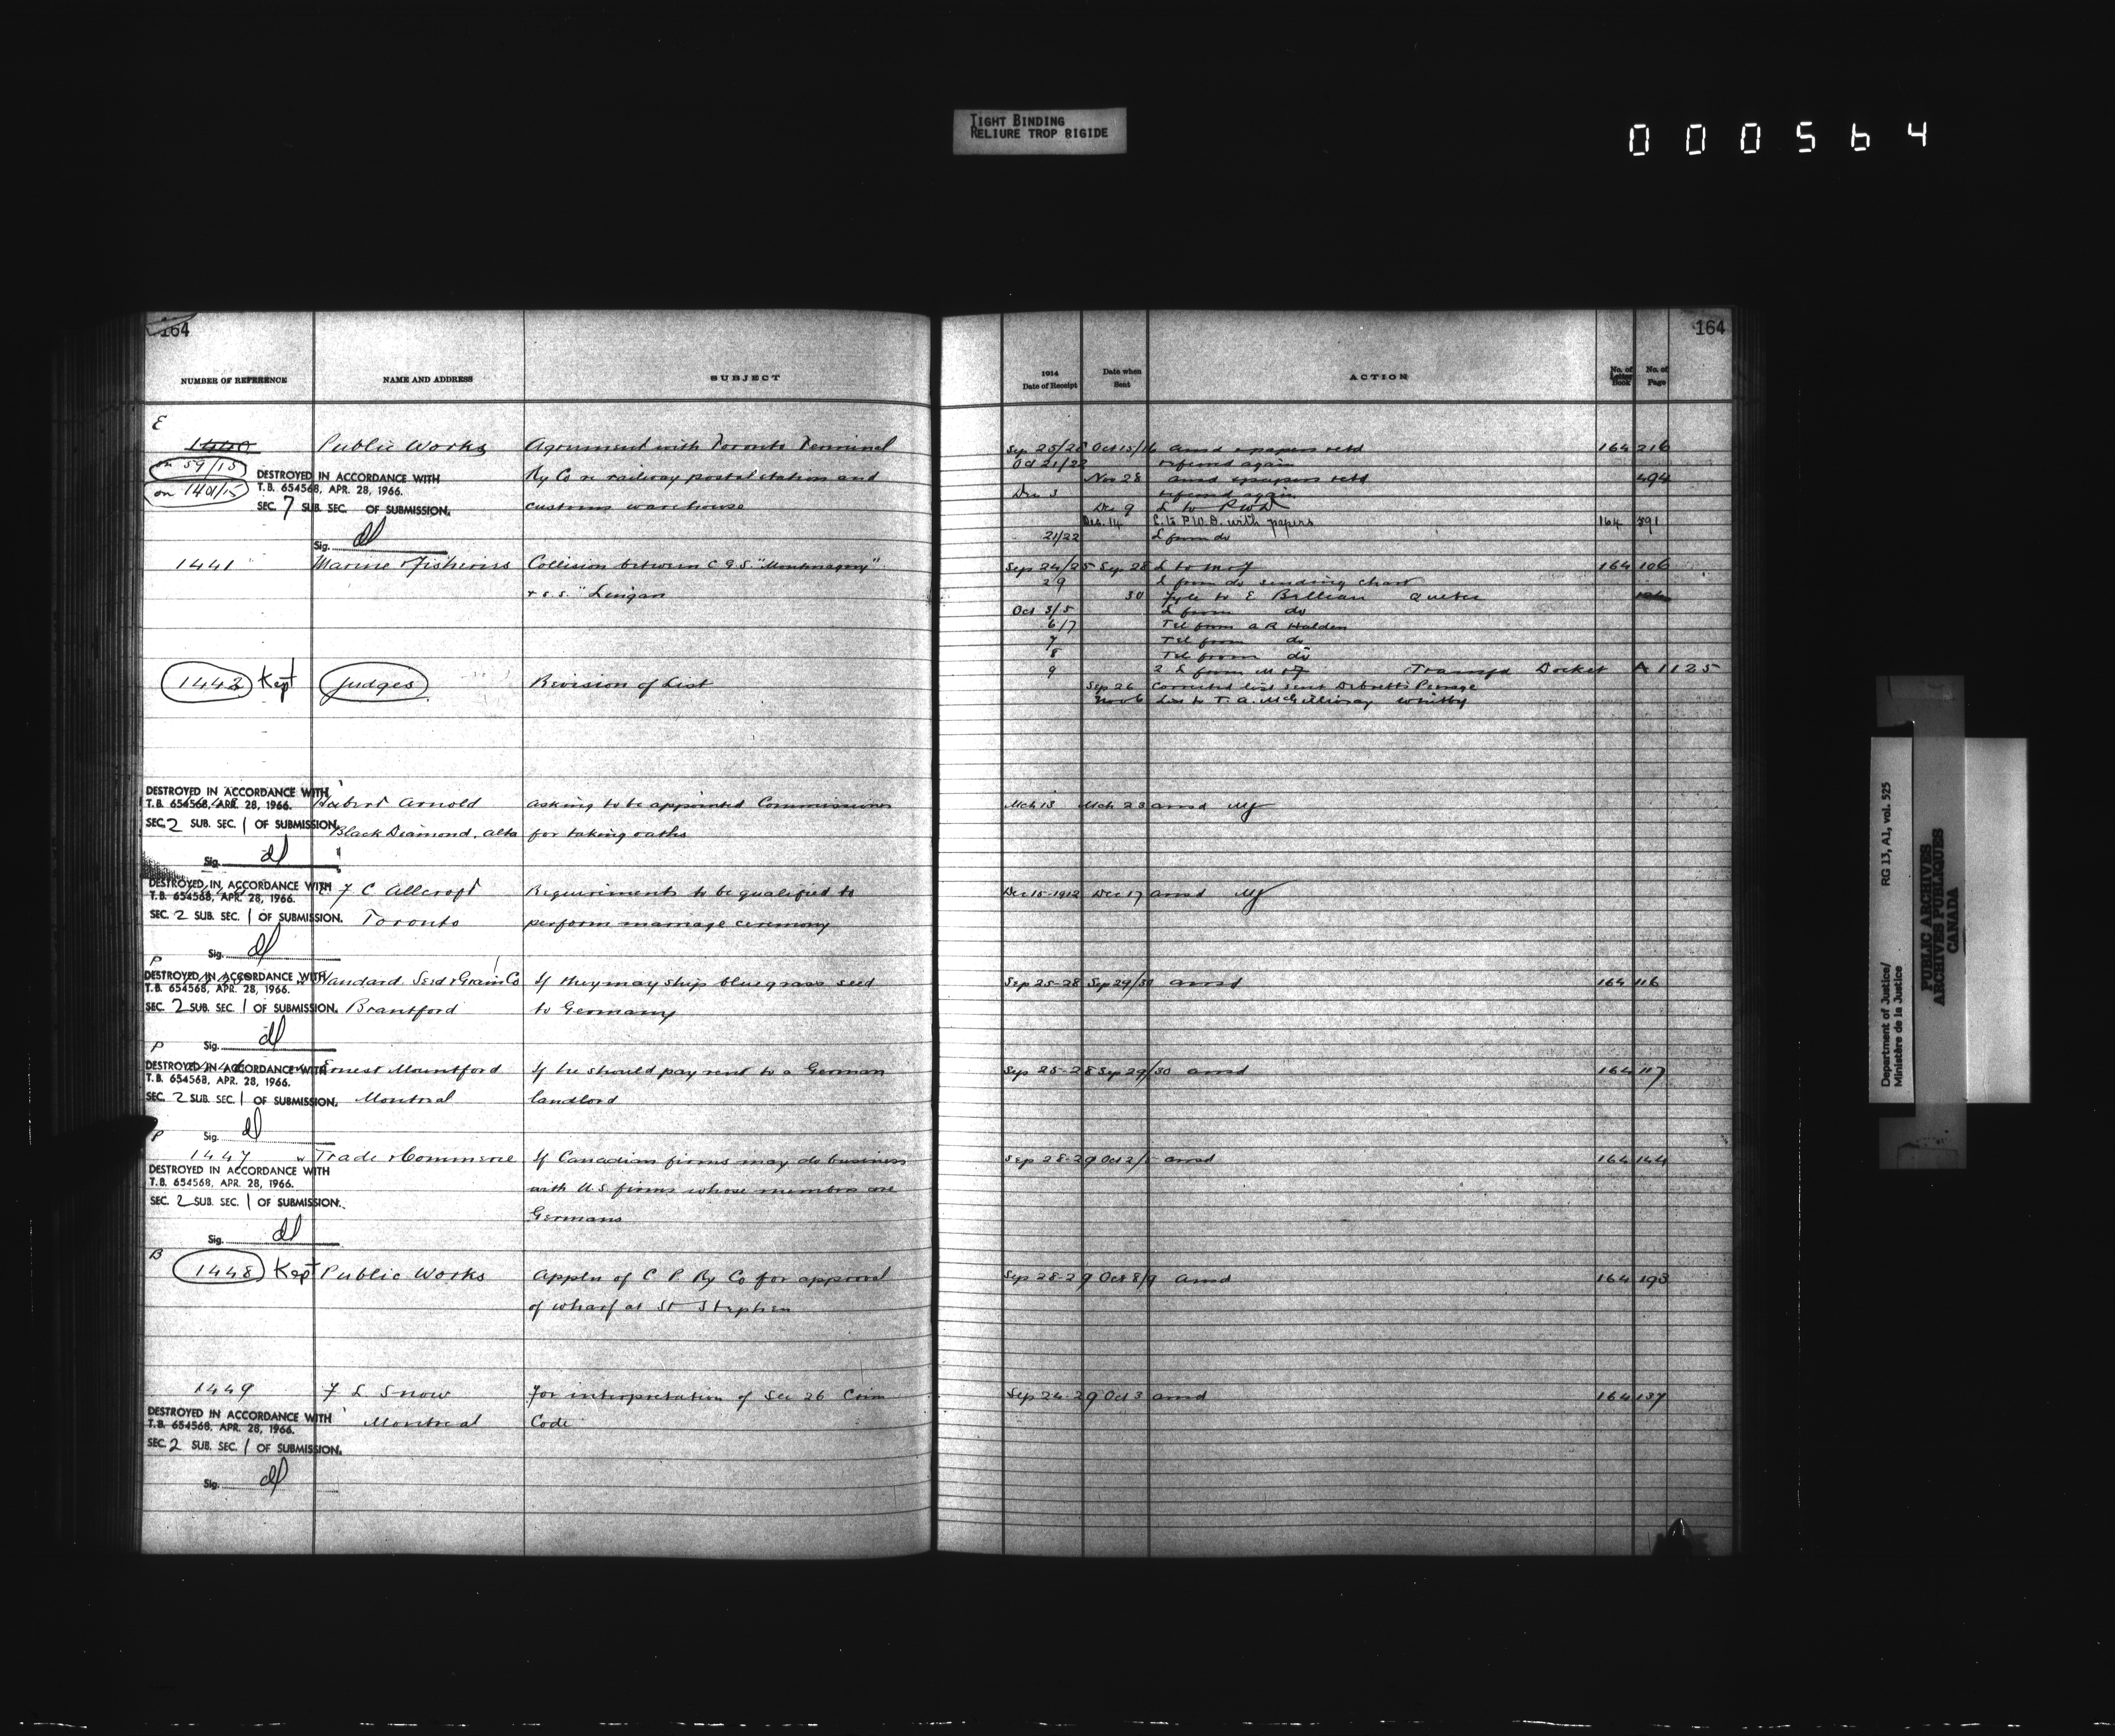 TIGHT BINDING
RELIURE TROP RIGIDE
000564
164
NUMBER OF REFERENCE NAME AND ADDRESS SUBJECT
E
1440 Public Works Agreement with Toronto Terminal
on 59/15 Ry Co re railway postal station and
on 1401/15 customs warehouse
DESTROYED IN ACCORDANCE WITH
T.B. 654568, APR. 28, 1966.
SEC. 7 SUB. SEC. OF SUBMISSION.
Sig. dl
1441 Marine & Fisheries Collision between C G S "Montmagny"
& s.s. "Lingan
1442 Kept Judges Revision of List
DESTROYED IN ACCORDANCE WITH
T.B. 654568, APR. 28, 1966.
SEC. 2 SUB. SEC. 1 OF SUBMISSION.
Sig. dl
Hubert Arnold asking to be appointed Commissioner
Black Diamond, Alta for taking oaths
DESTROYED IN ACCORDANCE WITH
T.B. 654568, APR. 28, 1966.
SEC. 2 SUB. SEC. 1 OF SUBMISSION.
Sig. dl
F C Allcroft Requirements to be qualified to
Toronto perform marriage ceremony
P
DESTROYED IN ACCORDANCE WITH
T.B. 654568, APR. 28, 1966.
SEC. 2 SUB. SEC. 1 OF SUBMISSION.
Sig. dl
Standard Seed & Grain Co If they may ship bluegrass seed
Brantford to Germany
P
DESTROYED IN ACCORDANCE WITH
T.B. 654568, APR. 28, 1966.
SEC. 2 SUB. SEC. 1 OF SUBMISSION.
Sig. dl
Ernest Mountford If he should pay rent to a German
Montreal landlord
P
1447 w Trade & Commerce If Canadian firms may do business
with U.S. firms whose members are
Germans
DESTROYED IN ACCORDANCE WITH
T.B. 654568, APR. 28, 1966.
SEC. 2 SUB. SEC. 1 OF SUBMISSION.
Sig. dl
B
1448 Kept Public Works Appln of C P Ry Co for approval
of wharf at St Stephen
1449 F L Snow For interpretation of Sec 26 Crim
Montreal Code
DESTROYED IN ACCORDANCE WITH
T.B. 654568, APR. 28, 1966.
SEC. 2 SUB. SEC. 1 OF SUBMISSION.
Sig. dl
164
1914 Date of Receipt Date when Sent ACTION No. of Letter Book No. of Page
Sep 25/28 Oct 15/16 ansd & papers retd 164 216
Oct 21/22 referred again
Nov 28 ansd & papers retd 494
Dec 3 referred again
Dec 9 L to PWD
Dec. 14 L. to P.W.D. with papers 164 591
21/22 L from do
Sep 24/25 Sep 28 L to M & F 164 106
29 L from do sending chart
30 Fyle to E Quebec
Oct 3/5 L from do
6/7 Tel from A R Holden
7 Tel from do
8 Tel from do
9 2 L from M & F Transfd Docket A 1125
Sep 26 Corrected list sent Debrett's Peerage
Nov 6 List to T. A. McGillivray Whitby
Mch 13 Mch 23 ansd
Dec 15-1912 Dec 17 ansd
Sep 25-28 Sep 29/30 ansd 164 116
Sep 25-28 Sep 29/30 ansd 164 117
Sep 28-29 Oct 2/ ansd 164 144
Sep 28-29 Oct 8/9 ansd 164 193
Sep 24-29 Oct 3 ansd 164 137
Department of Justice/ RG 13, A1, vol. 525
Ministère de la Justice
PUBLIC ARCHIVES
ARCHIVES PUBLIQUES
CANADA